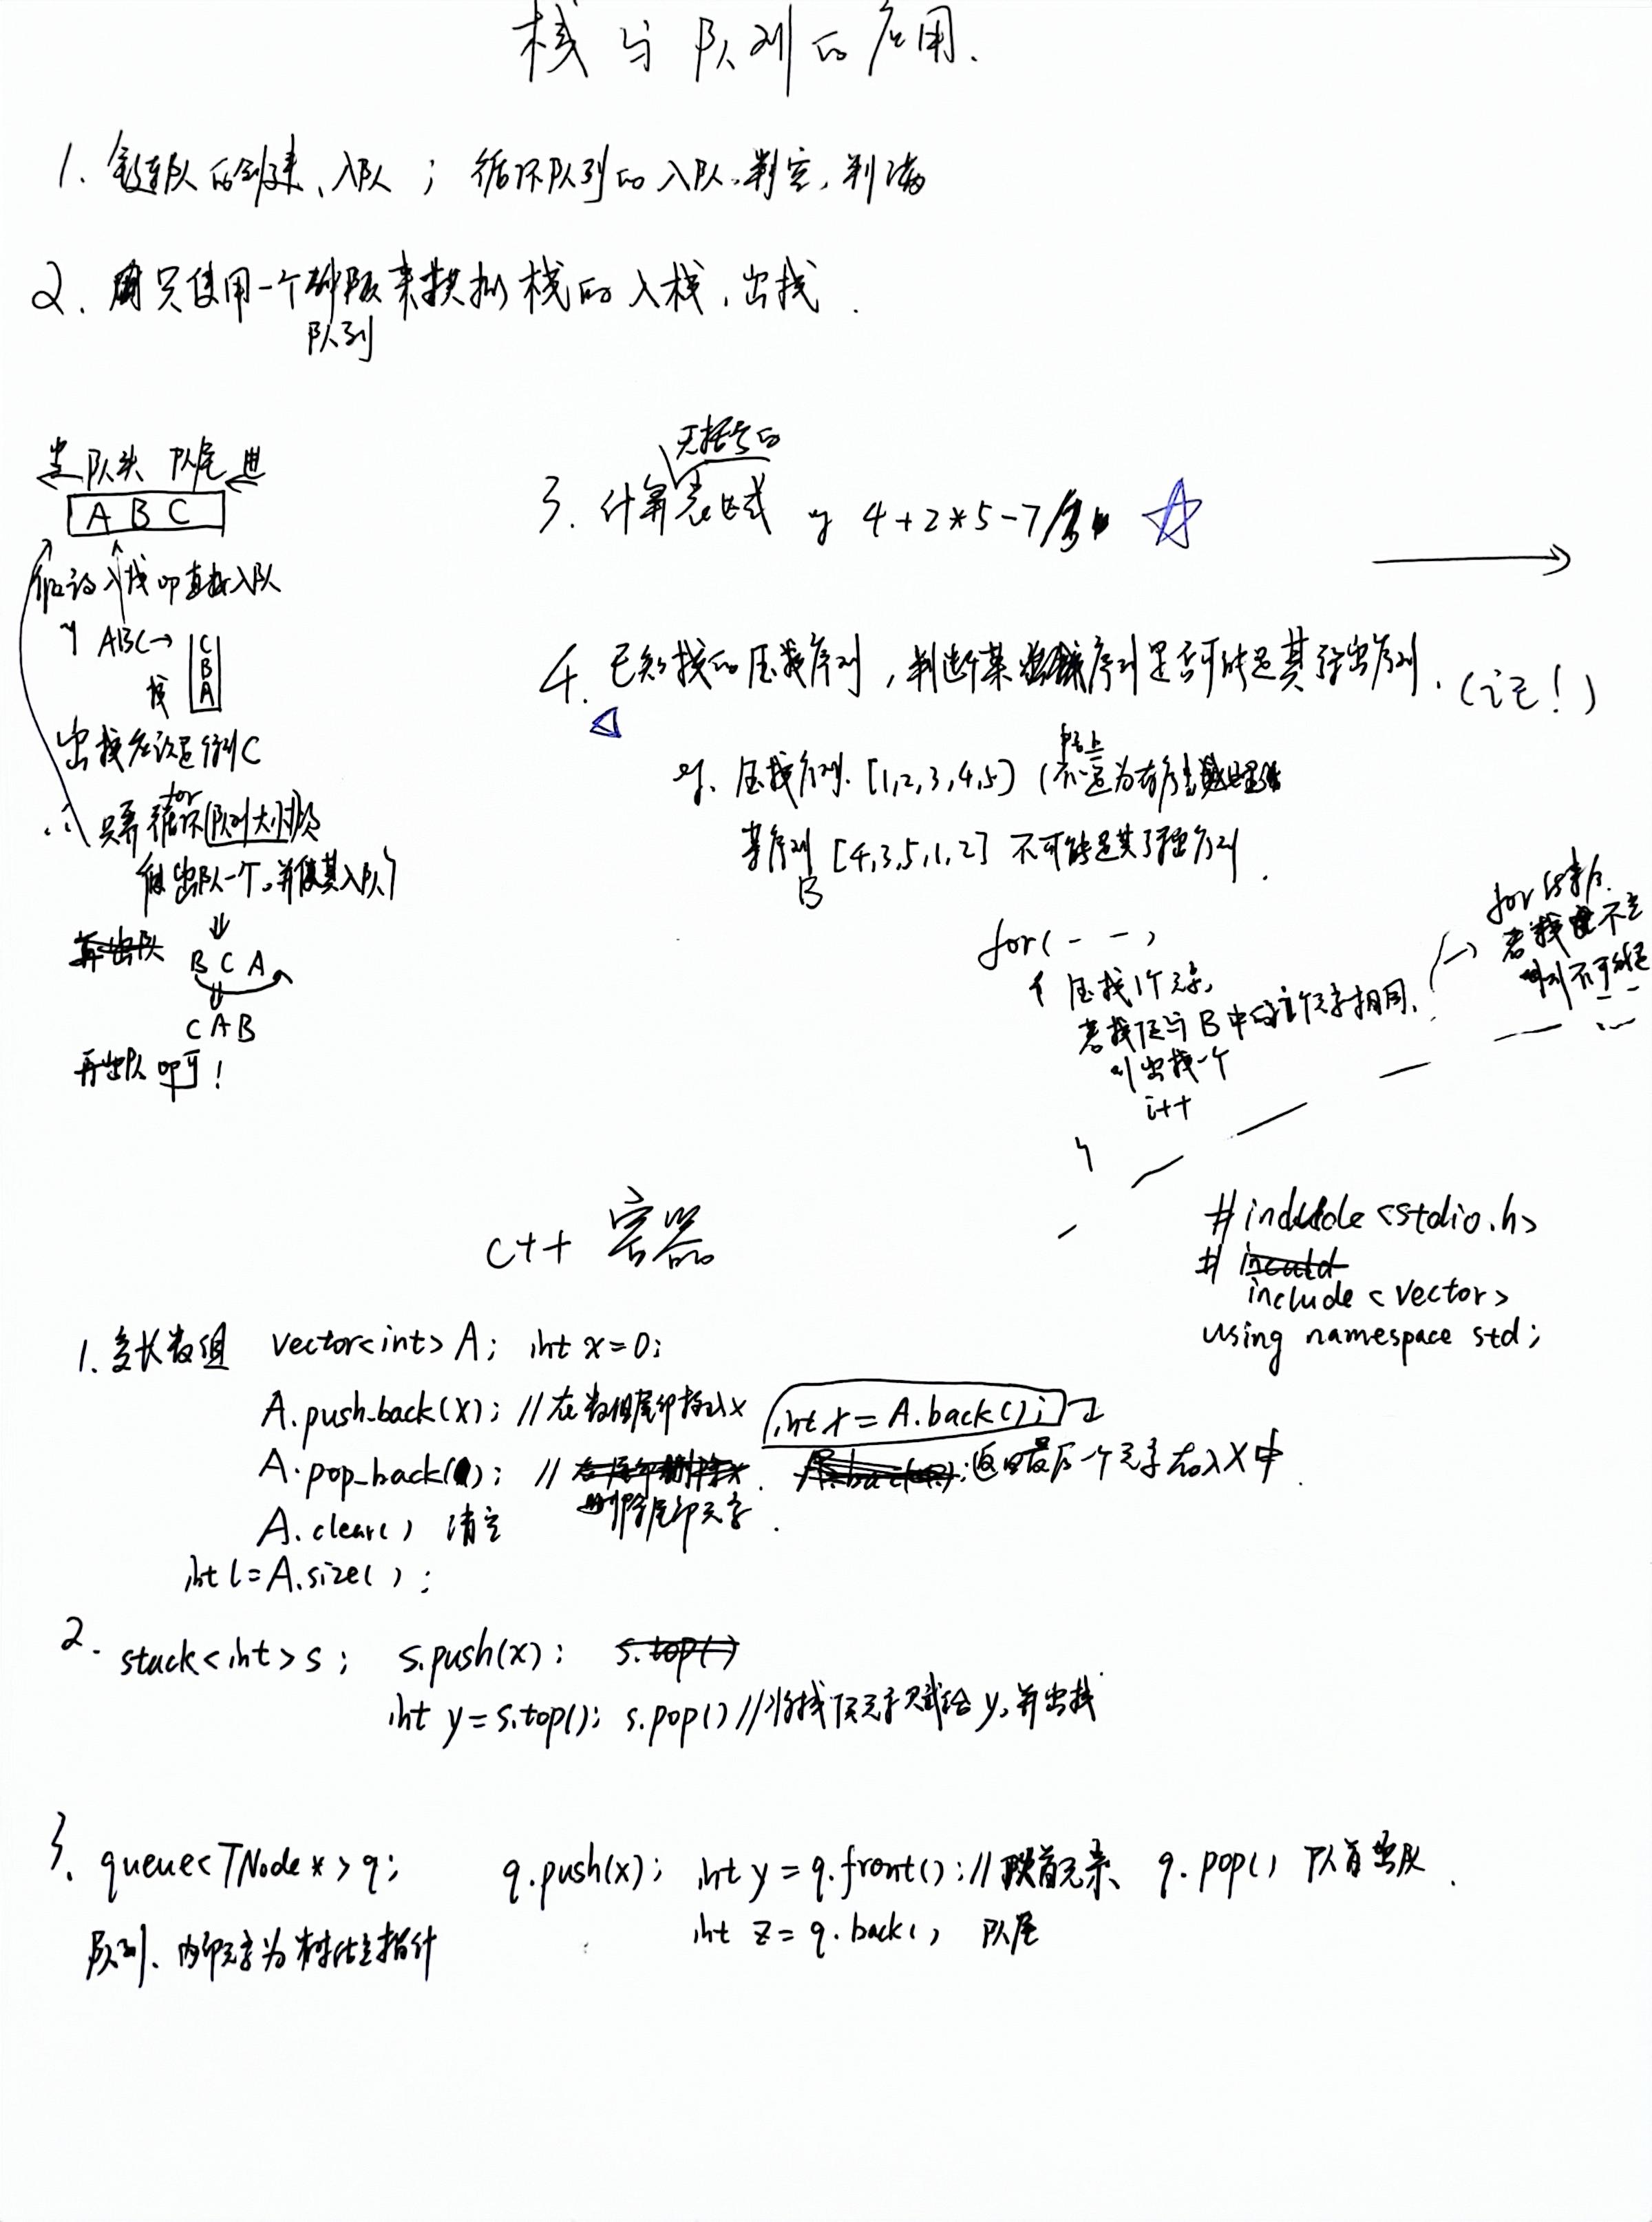 栈与队列的应用.
1. 链队的创建、入队；循环队列的入队、判空，判满
2. 只使用一个队列来模拟栈的入栈，出栈.
出 队头 队尾 进
A B C
假设入栈即直接入队
ABC→
C
B
A
栈
出栈应该是得到C
∴只需循环(队列大小)次
for
做出队一个，并使其入队
B C A
C A B
再出队即可！
无括号的
3. 计算表达式 4+2*5-7/
4. 已知栈的压栈序列，判断某序列是否可能是其弹出序列.（记！）
eg. 压栈序列. [1,2,3,4,5] (不一定为有序
某序列 [4,3,5,1,2] 不可能是其弹出序列.
B
for( - - )
{ 压栈1个元素,
若栈顶与B中的第i个元素相同,
则出栈一个
i++
}
→ for结束后.
若栈不空
则不可能是
C++ 容器
#include <stdio.h>
#
include <vector>
using namespace std;
1. 变长数组 vector<int> A; int x=0;
A.push_back(x); //在数组尾部插入x int x = A.back();
A.pop_back(); // 返回最后一个元素存入x中.
删除尾部元素.
A.clear() 清空
int l=A.size();
2. stack<int> s; s.push(x); s.top()
int y=s.top(); s.pop() //将栈顶元素赋给y,并出栈
3. queue<TNode*> q; q.push(x); int y=q.front(); //队首元素、 q.pop() 队首出队.
int z=q.back() 队尾
队列、内部元素为树结点指针